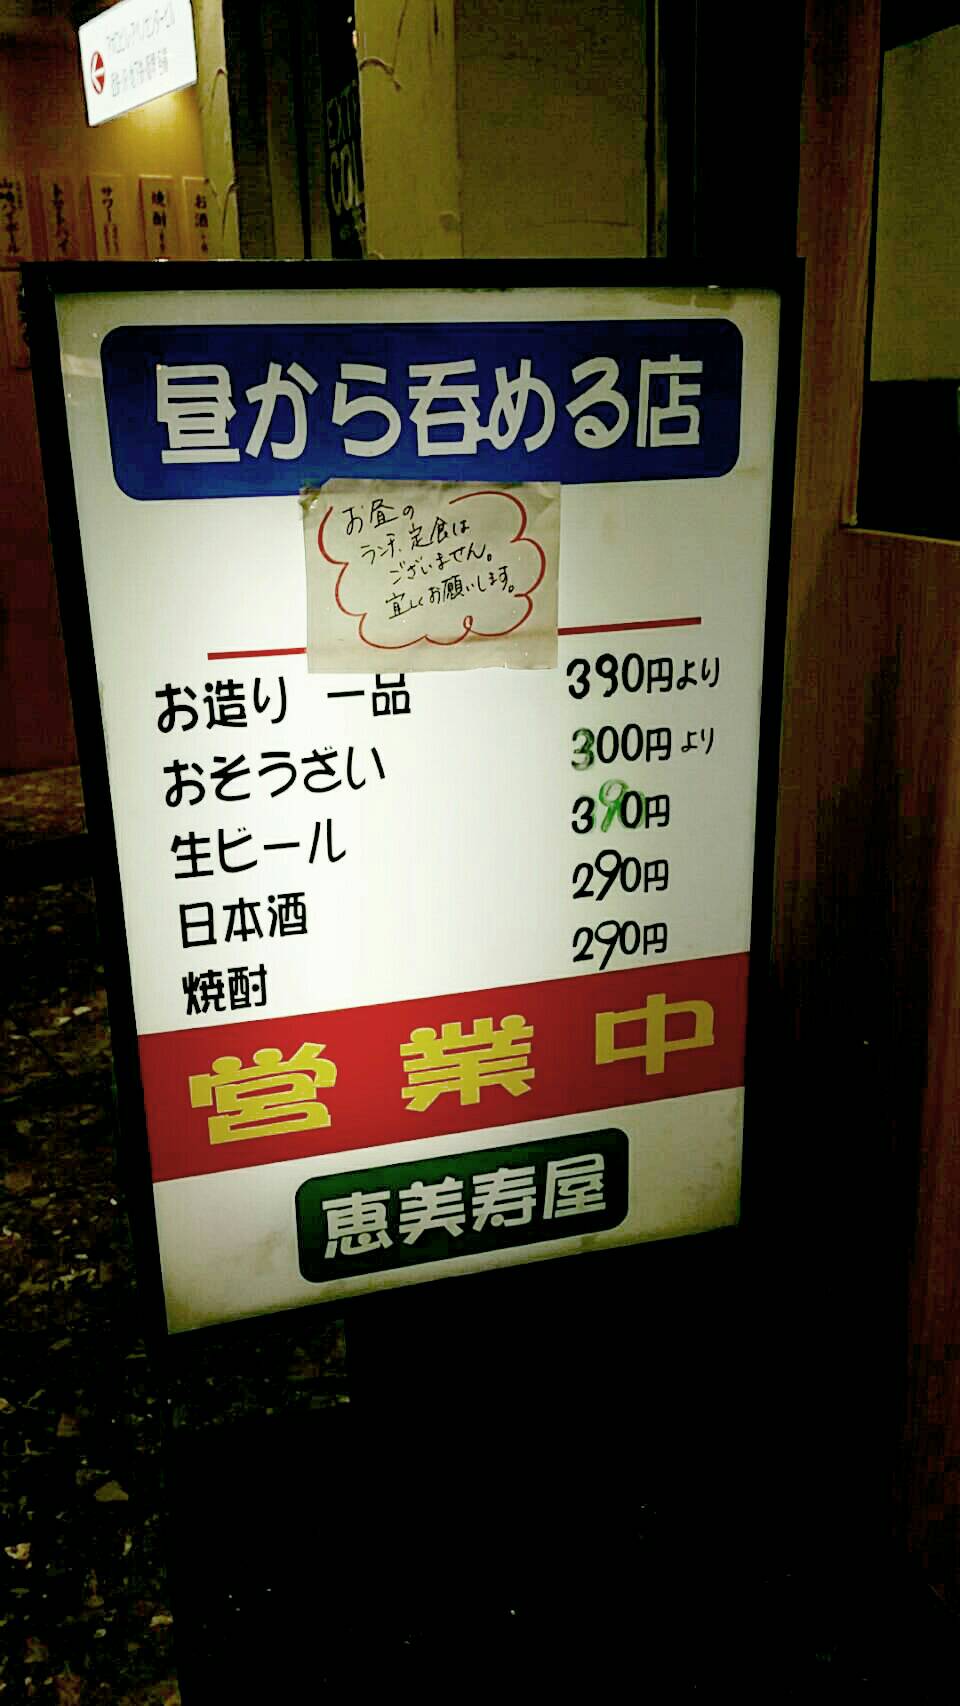 昼から呑める店
お昼の
ランチ、定食は
ございません。
宜しくお願いします。
お造り 一品 390円より
おそうざい 300円より
生ビール 390円
日本酒 290円
焼酎 290円
営業中
恵美寿屋
お酒
焼酎
サワー